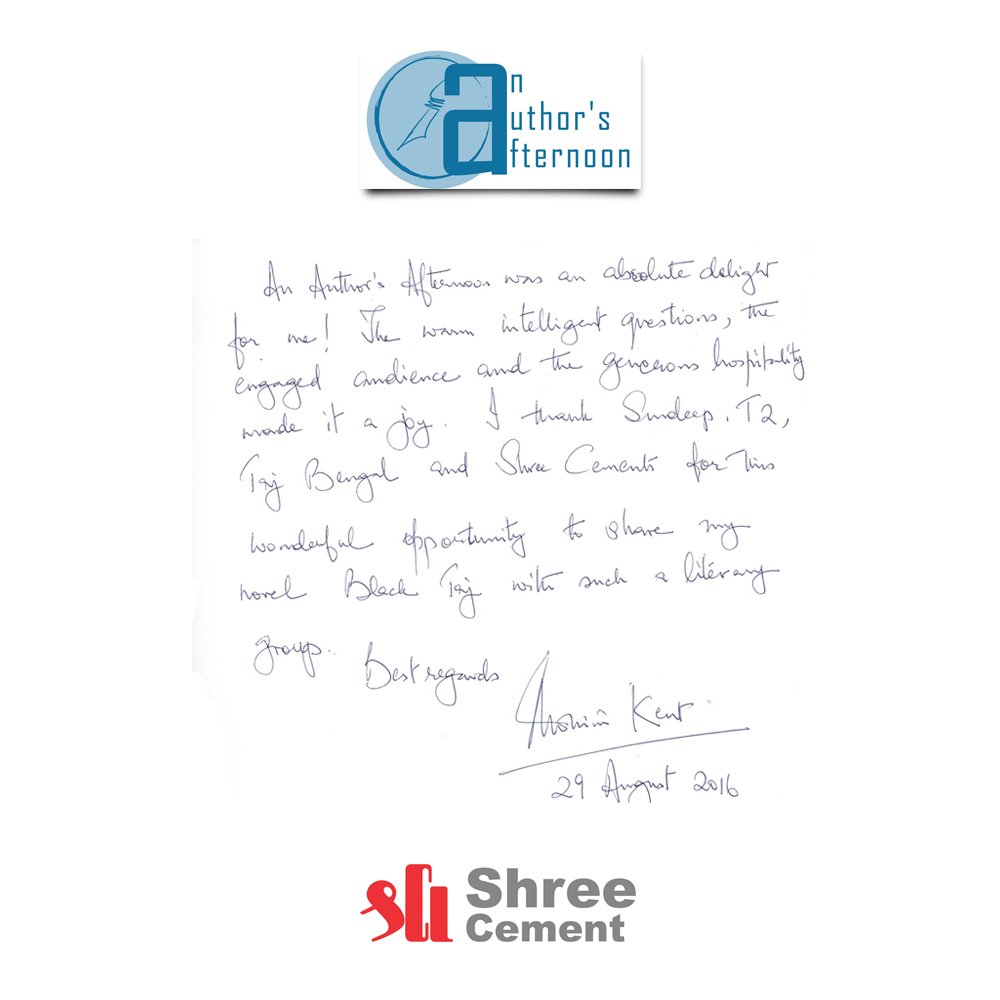 An
author's
afternoon
An Author's Afternoon was an absolute delight
for me! The warm intelligent questions, the
engaged audience and the generous hospitality
made it a joy. I thank Sundeep, T2,
Taj Bengal and Shree Cements for this
wonderful opportunity to share my
novel Black Taj with such a literary
group. Best regards
Mohini Kent
29 August 2016
Shree
Cement